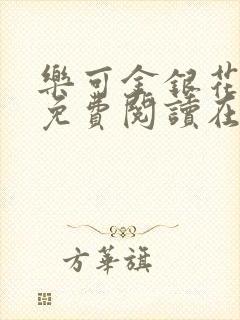 樂可金銀花
免費閱讀在
方華旗